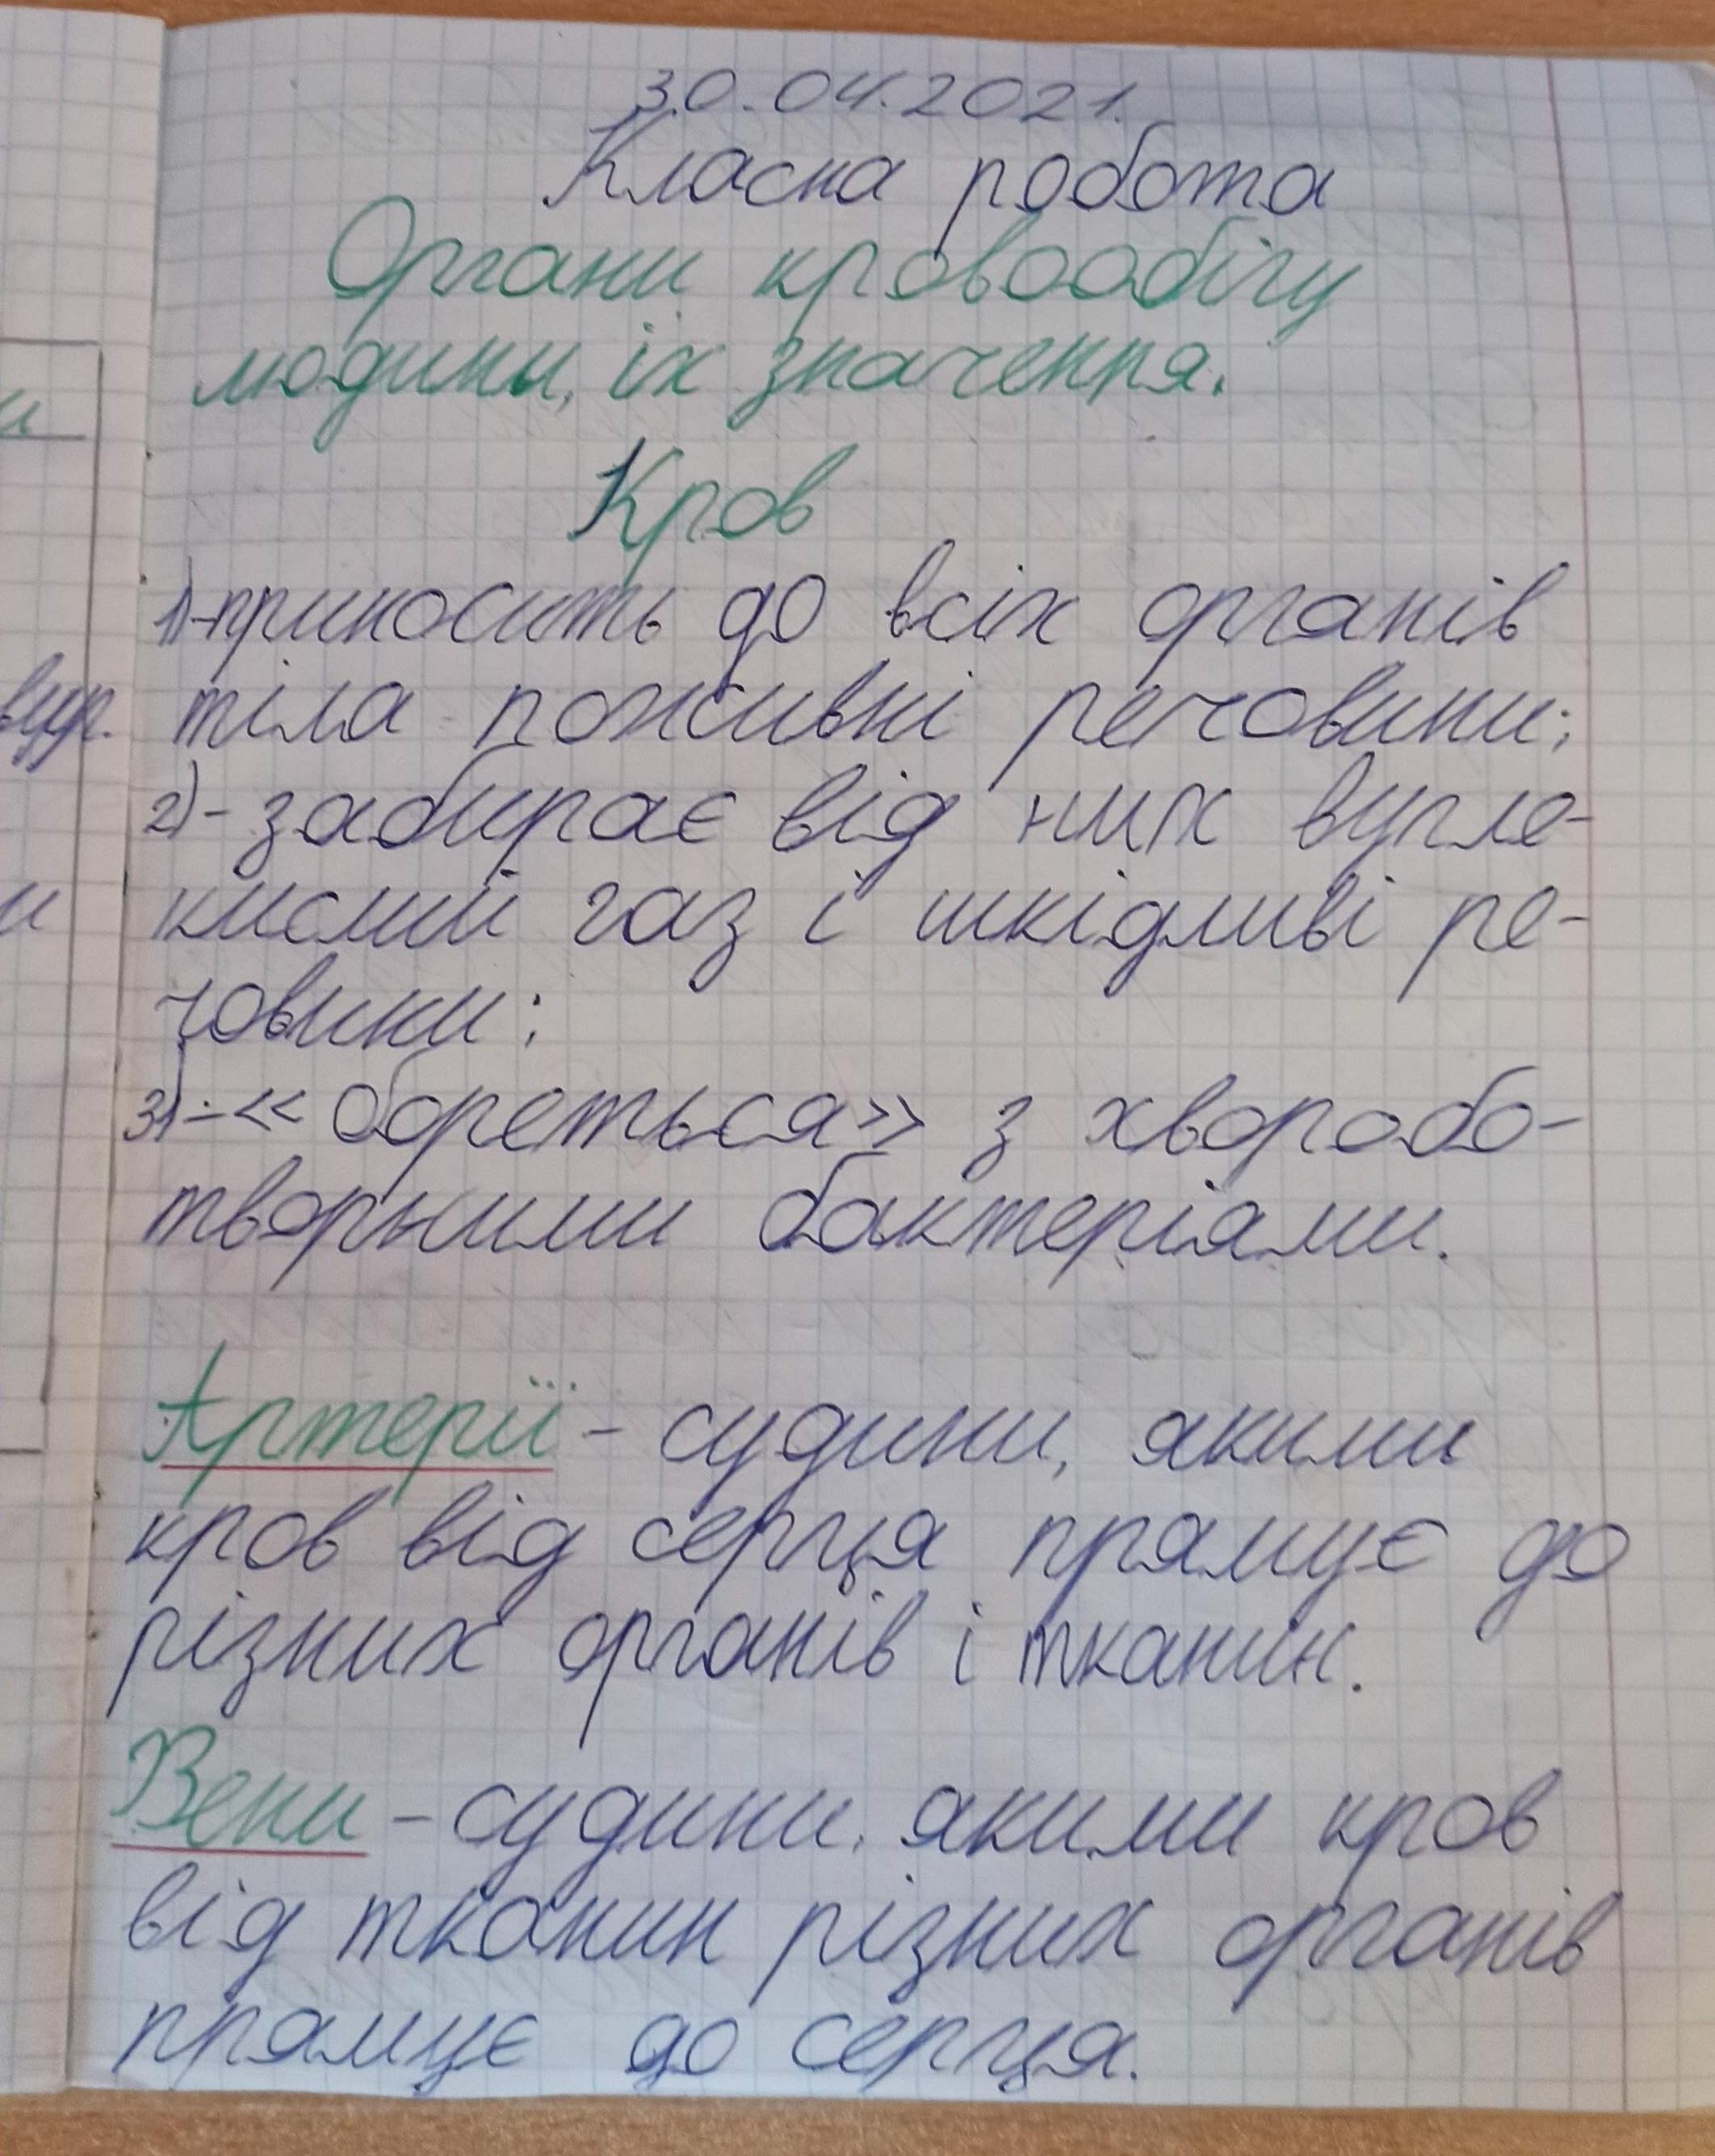 30.04.2021.
Класна робота
Органи кровообігу
людини, їх значення.
Кров
1)-приносить до всіх органів
тіла поживні речовини;
2)-забирає від них вугле-
кислий газ і шкідливі ре-
човини;
3)-«бореться» з хворобо-
творними бактеріями.
Артерії - судини, якими
кров від серця прямує до
різних органів і тканин.
Вени - судини, якими кров
від тканин різних органів
прямує до серця.